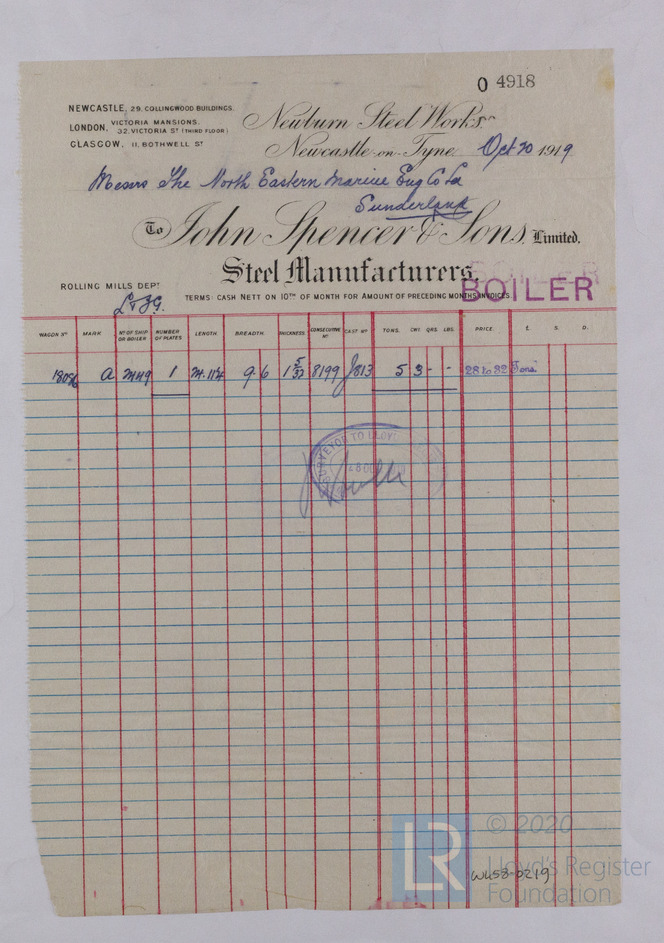 O 4918
NEWCASTLE, 29, COLLINGWOOD BUILDINGS.
LONDON, VICTORIA MANSIONS. 32, VICTORIA ST (THIRD FLOOR)
GLASGOW, 11, BOTHWELL ST
Newburn Steel Works.
Newcastle-on-Tyne. Oct 20 1919
Messrs The North Eastern Marine Eng Co Ld
Sunderland
To John Spencer & Sons, Limited.
Steel Manufacturers
ROLLING MILLS DEPT
BOILER
TERMS: CASH NETT ON 10TH OF MONTH FOR AMOUNT OF PRECEDING MONTHS INVOICES.
WAGON No MARK No OF SHIP OR BOILER NUMBER OF PLATES LENGTH BREADTH THICKNESS CONSECUTIVE No CAST No TONS. CWT QRS. LBS. PRICE. £. S. D.
a 2449 1 9.6 1 5/32 8199 J813 5 3 - - 28 to 32 Tons
SURVEYOR TO LLOYD
LR
© 2020
Lloyd's Register
Foundation
W458-0219